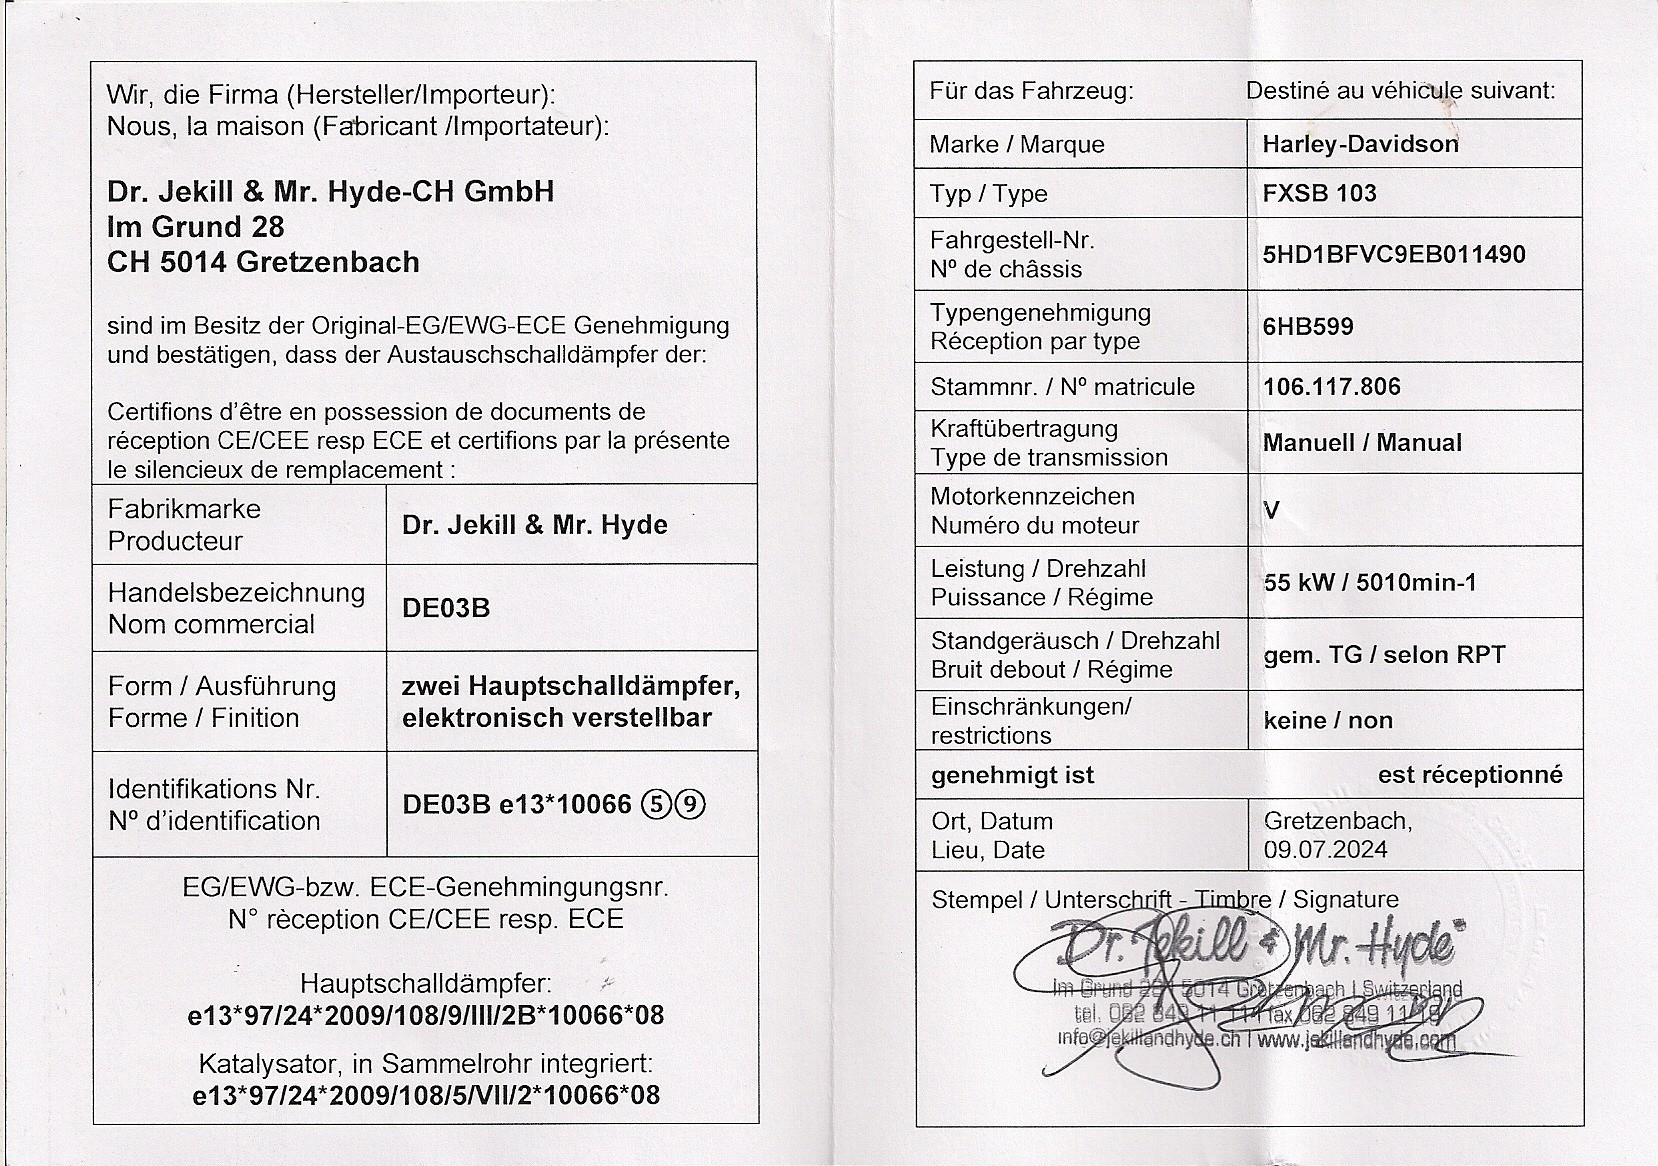 Wir, die Firma (Hersteller/Importeur):
Nous, la maison (Fabricant /Importateur):
Dr. Jekill & Mr. Hyde-CH GmbH
Im Grund 28
CH 5014 Gretzenbach
sind im Besitz der Original-EG/EWG-ECE Genehmigung
und bestätigen, dass der Austauschschalldämpfer der:
Certifions d'être en possession de documents de
réception CE/CEE resp ECE et certifions par la présente
le silencieux de remplacement :
Fabrikmarke
Producteur
Dr. Jekill & Mr. Hyde
Handelsbezeichnung
Nom commercial
DE03B
Form / Ausführung
Forme / Finition
zwei Hauptschalldämpfer,
elektronisch verstellbar
Identifikations Nr.
Nº d'identification
DE03B e13*10066 ⑤⑨
EG/EWG-bzw. ECE-Genehmingungsnr.
N° rèception CE/CEE resp. ECE
Hauptschalldämpfer:
e13*97/24*2009/108/9/III/2B*10066*08
Katalysator, in Sammelrohr integriert:
e13*97/24*2009/108/5/VII/2*10066*08
Für das Fahrzeug: Destiné au véhicule suivant:
Marke / Marque Harley-Davidson
Typ / Type FXSB 103
Fahrgestell-Nr.
Nº de châssis
5HD1BFVC9EB011490
Typengenehmigung
Réception par type
6HB599
Stammnr. / Nº matricule 106.117.806
Kraftübertragung
Type de transmission
Manuell / Manual
Motorkennzeichen
Numéro du moteur
V
Leistung / Drehzahl
Puissance / Régime
55 kW / 5010min-1
Standgeräusch / Drehzahl
Bruit debout / Régime
gem. TG / selon RPT
Einschränkungen/
restrictions
keine / non
genehmigt ist est réceptionné
Ort, Datum
Lieu, Date
Gretzenbach,
09.07.2024
Stempel / Unterschrift - Timbre / Signature
Dr. Jekill & Mr. Hyde
Im Grund 28 | 5014 Gretzenbach | Switzerland
tel. 062 849 11 11 | fax 062 849 11 19
info@jekillandhyde.ch | www.jekillandhyde.com